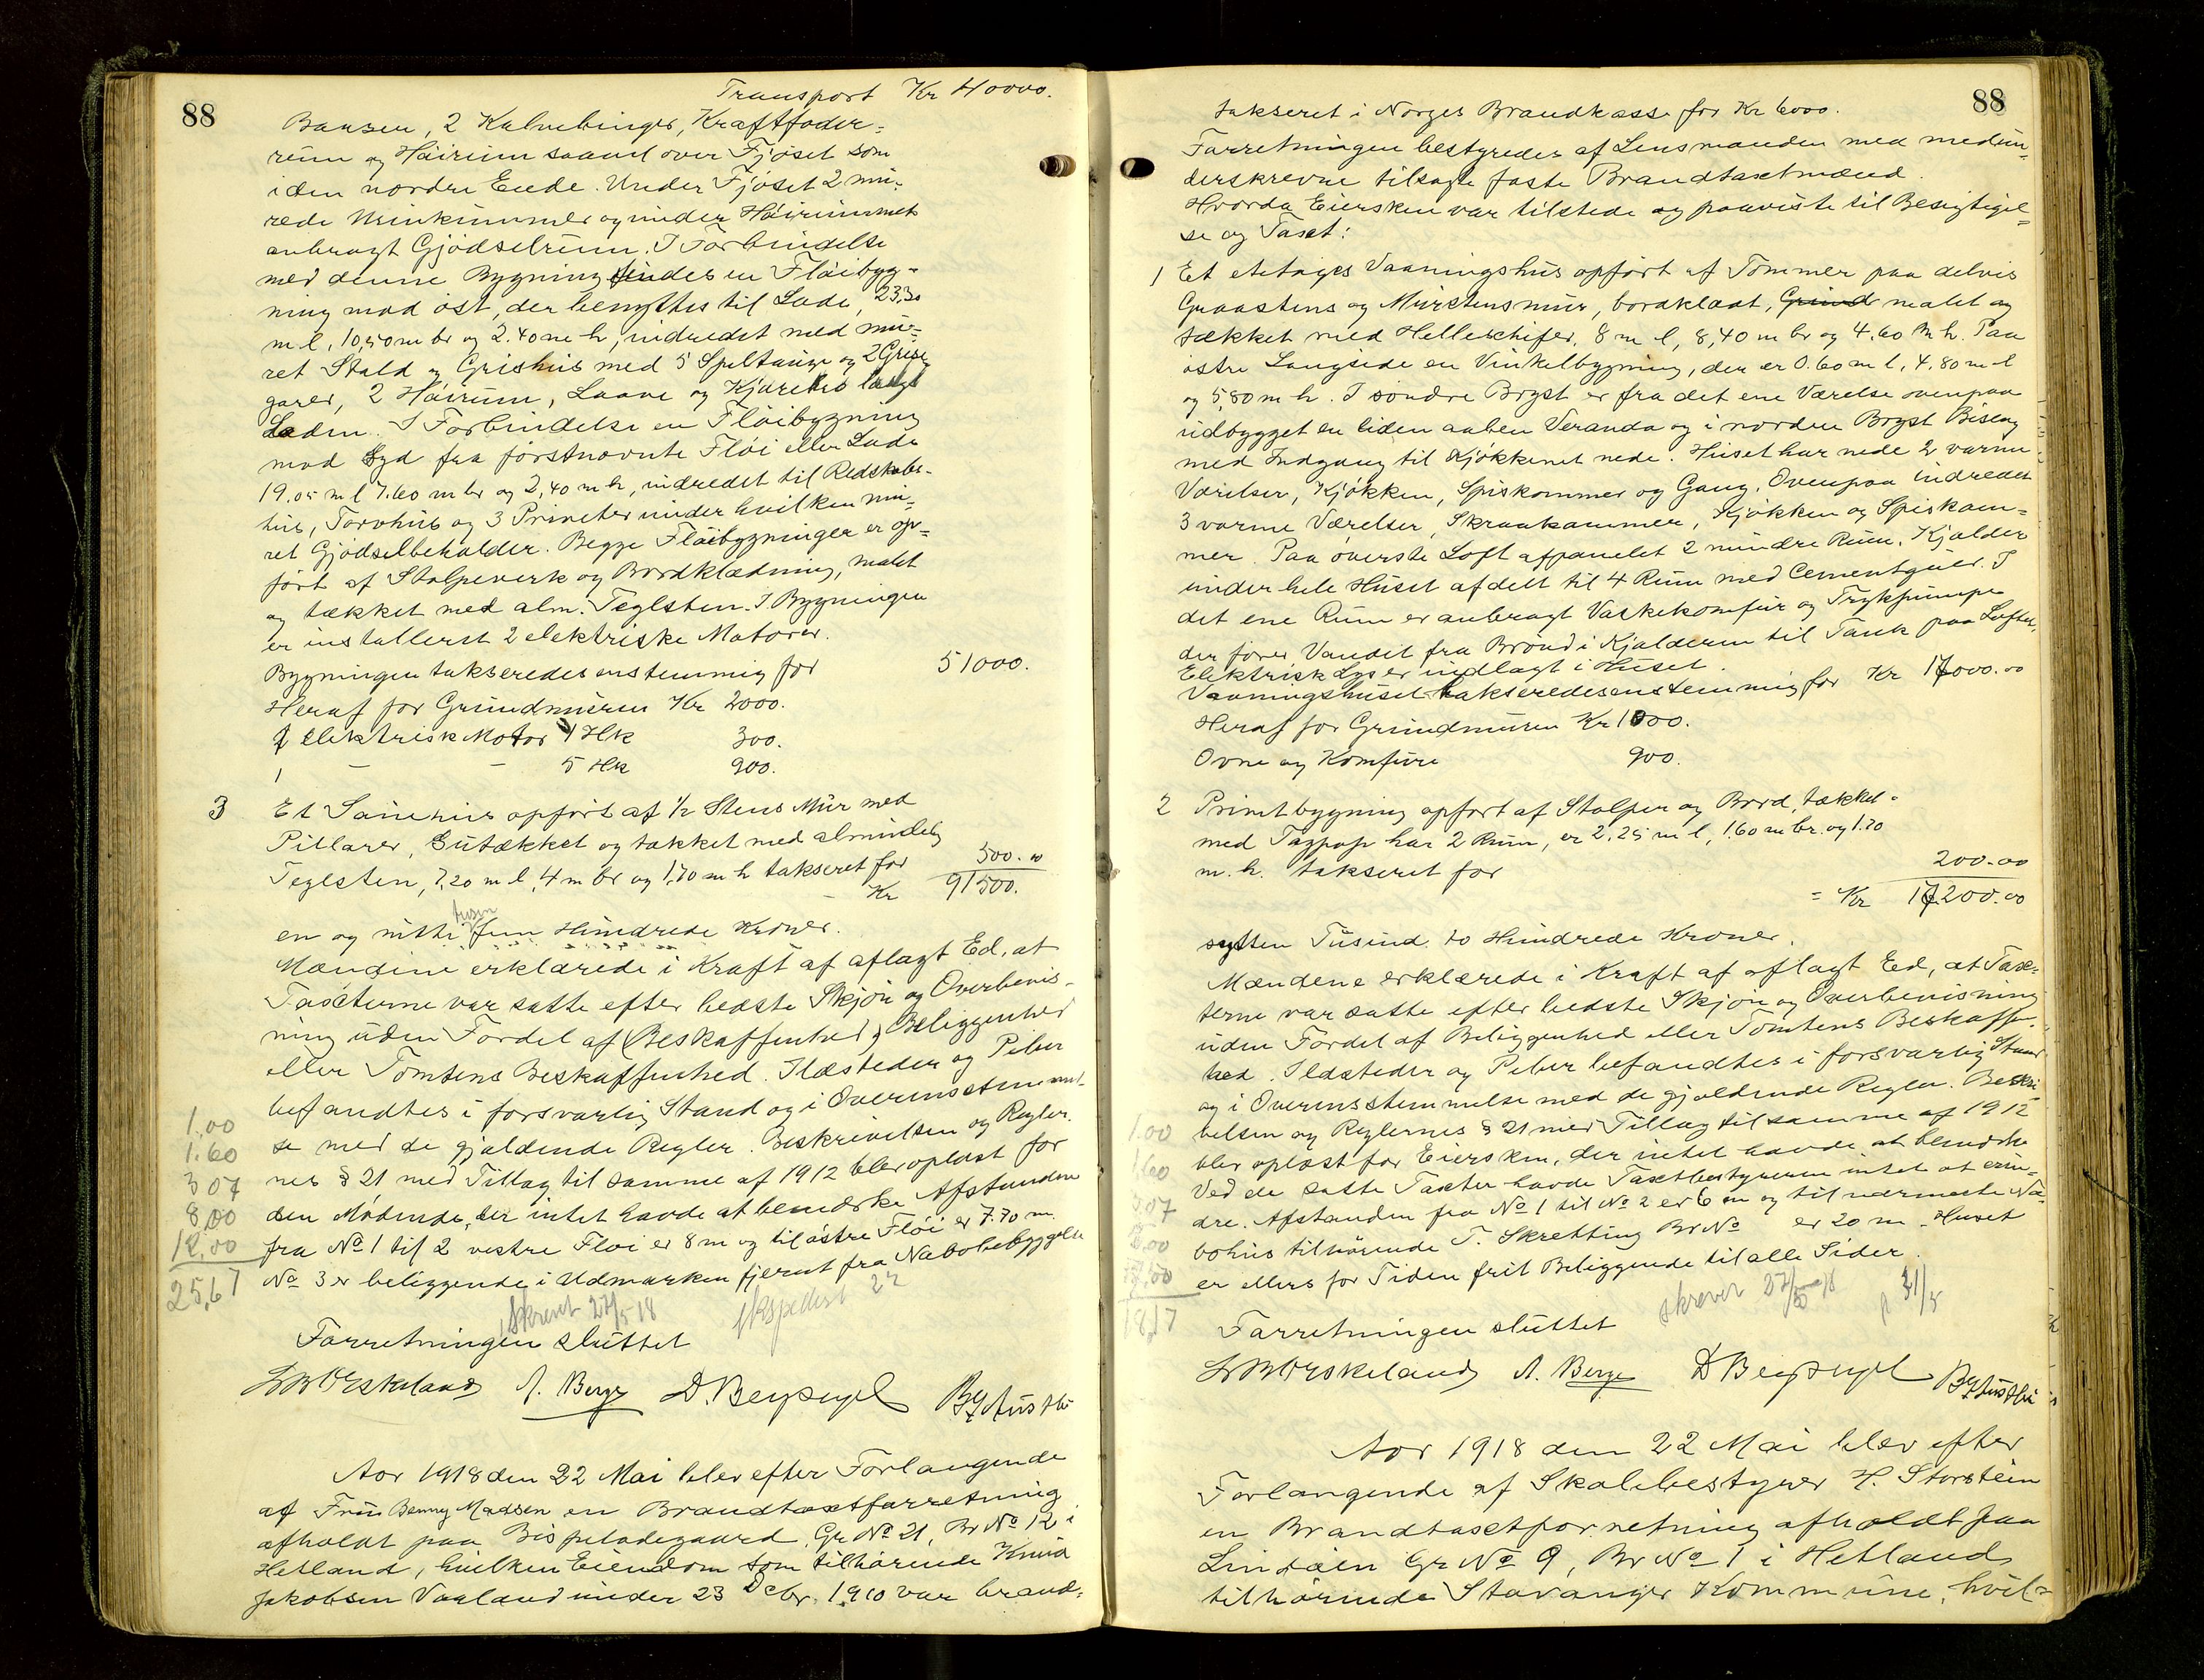 88
Transport Kr 40000.
Baasen, 2 Kalvebinger, Kraftfoder-
rum og Høirum saavel over Fjøset som
i den nordre Ende. Under Fjøset 2 mu-
rede Urinkummer og under Høirummet
anbragt Gjødselrum. I Forbindelse
med denne Bygning findes en Fløibyg-
ning mod øst, der benyttes til Lade, 23,30
m l, 10,50 m br og 2.40 m h, indredet med mu-
ret Stald og Grishus med 5 Spiltauge og 2 Grise
garer, 2 Høirum, Laave og Kjørebro langs
Laden. I Forbindelse en Fløibygning
mod Syd fra førstnævnte Fløi eller Lade
19.05 m l 7.60 m br og 2,40 m h, indredet til Redskabs-
hus, Torvhus og 3 Priveter under hvilken mu-
ret Gjødselbeholder. Begge Fløibygninger er op-
ført af Stolpeverk og Bordklædning, malet
og tækket med alm. Teglsten. I Bygningen
er installeret 2 elektriske Motorer.
Bygningen takseredes enstemmig for 51000.
Heraf for Grundmuren Kr 2000.
1 elektrisk Motor 1 Hk 300.
1 - - 5 Hk 900.
3 Et Sauehus opført af 1/2 Stens Mur med
Pillarer, Sutækket og tækket med almindelig
Teglsten, 7,20 m l, 4 m br og 1,70 m h takseret for 500.00
Kr 91500.
en og nitti tusen fem Hundrede Kroner.
Mændene erklærede i Kraft af aflagt Ed, at
Taxterne var satte efter bedste Skjøn og Overbevis-
ning uden Fordel af Beskaffenhed, Beliggenhed
eller Tomtens Beskaffenhed. Ildsteder og Piber
befandtes i forsvarlig Stand og i Overensstemmel-
se med de gjældende Regler. Beskrivelsen og Regler-
nes § 21 med Tillæg til samme af 1912 blev oplæst for
den Mødende, der intet havde at bemerke. Afstanden
fra No 1 til 2 vestre Fløi er 8 m og til østre Fløi er 7.70 m.
No 3 er beliggende i Udmarken fjernt fra Nabobebyggelse
1.00
1.60
3 07
8,00
12,00
25,67
Skrevet 27/5 18 Ekspedert 22
Forretningen sluttet
A. Berge
Aar 1918 den 22 Mai blev efter Forlangende
af Fru Benny Madsen en Brandtaxtforretning
afholdt paa Bispeladegaard, Gr No 21, Br No 12 i
Hetland, hvilken Eiendom som tilhørende Knud
Jakobsen Vaaland under 23 Decbr. 1910 var brand-
88
takseret i Norges Brandkasse for Kr 6000.
Forretningen bestyredes af Lensmanden med medun-
derskrevne tilsagte faste Brandtaxtmænd.
Hvorda Eiersken var tilstede og paaviste til Besigtigel-
se og Taxt:
1 Et etetages Vaaningshus opført af Tømmer paa delvis
Graastens og Murstensmur, bordklædt, Grund malet og
tækket med Helleskifer, 8 m l, 8,40 m br og 4.60 m h. Paa
østre Langside en Vinkelbygning, der er 0.60 m l, 4.80 m l
og 5,80 m h. I søndre Bryst er fra det ene Værelse ovenpaa
udbygget en liden aaben Veranda og i nordre Bryst Bislag
med Indgang til Kjøkkenet nede. Huset har nede 2 varme
Værelser, Kjøkken, Spiskammer og Gang. Ovenpaa indredet
3 varme Værelser, Skraakammer, Kjøkken og Spiskam-
mer. Paa øverste Loft afpanelet 2 mindre Rum. Kjælder
under hele Huset afdelt til 4 Rum med Cementgulv. I
det ene Rum er anbragt Vaskekomfur og Trykpumpe
der fører Vandet fra Brønd i Kjælderen til Tank paa Loftet.
Elektrisk Lys er indlagt i Huset.
Vaaningshuset takseredes enstemmig for Kr 17000.00
Heraf for Grundmuren Kr 1000.
Ovne og Komfure 900.
2 Privetbygning opført af Stolper og Bord, tækket
med Tagpap har 2 Rum, er 2,25 m l, 1,60 m br. og 1.70
m. h. takseret for 200.00
= Kr 17200.00
sytten Tusind to Hundrede Kroner.
Mændene erklærede i Kraft af aflagt Ed, at Tax-
terne var satte efter bedste Skjøn og Overbevisning
uden Fordel af Beliggenhed eller Tomtens Beskaffen-
hed. Ildsteder og Piber befandtes i forsvarlig Stand
og i Overensstemmelse med de gjældende Regler. Beskri-
velsen og Reglernes § 21 med Tillæg til samme af 1912
blev oplæst for Eiersken, der intet havde at bemerke
Ved de satte Taxter havde Taxtbestyreren intet at erin-
dre. Afstanden fra No 1 til No 2 er 6 m og til nærmeste Na-
bohus tilhørende T. Skretting Br No er 20 m. Huset
er ellers for Tiden frit Beliggende til alle Sider.
1.00
1.60
3,07
18,17
skrevet 27/5 18 31/5
Forretningen sluttet
A. Berge
Aar 1918 den 22 Mai blev efter
Forlangende af Skolebestyrer H. Storstein
en Brandtaxtforretning afholdt paa
Lindøen Gr No 9, Br No 1 i Hetland
tilhørende Stavanger Kommune, hvil-